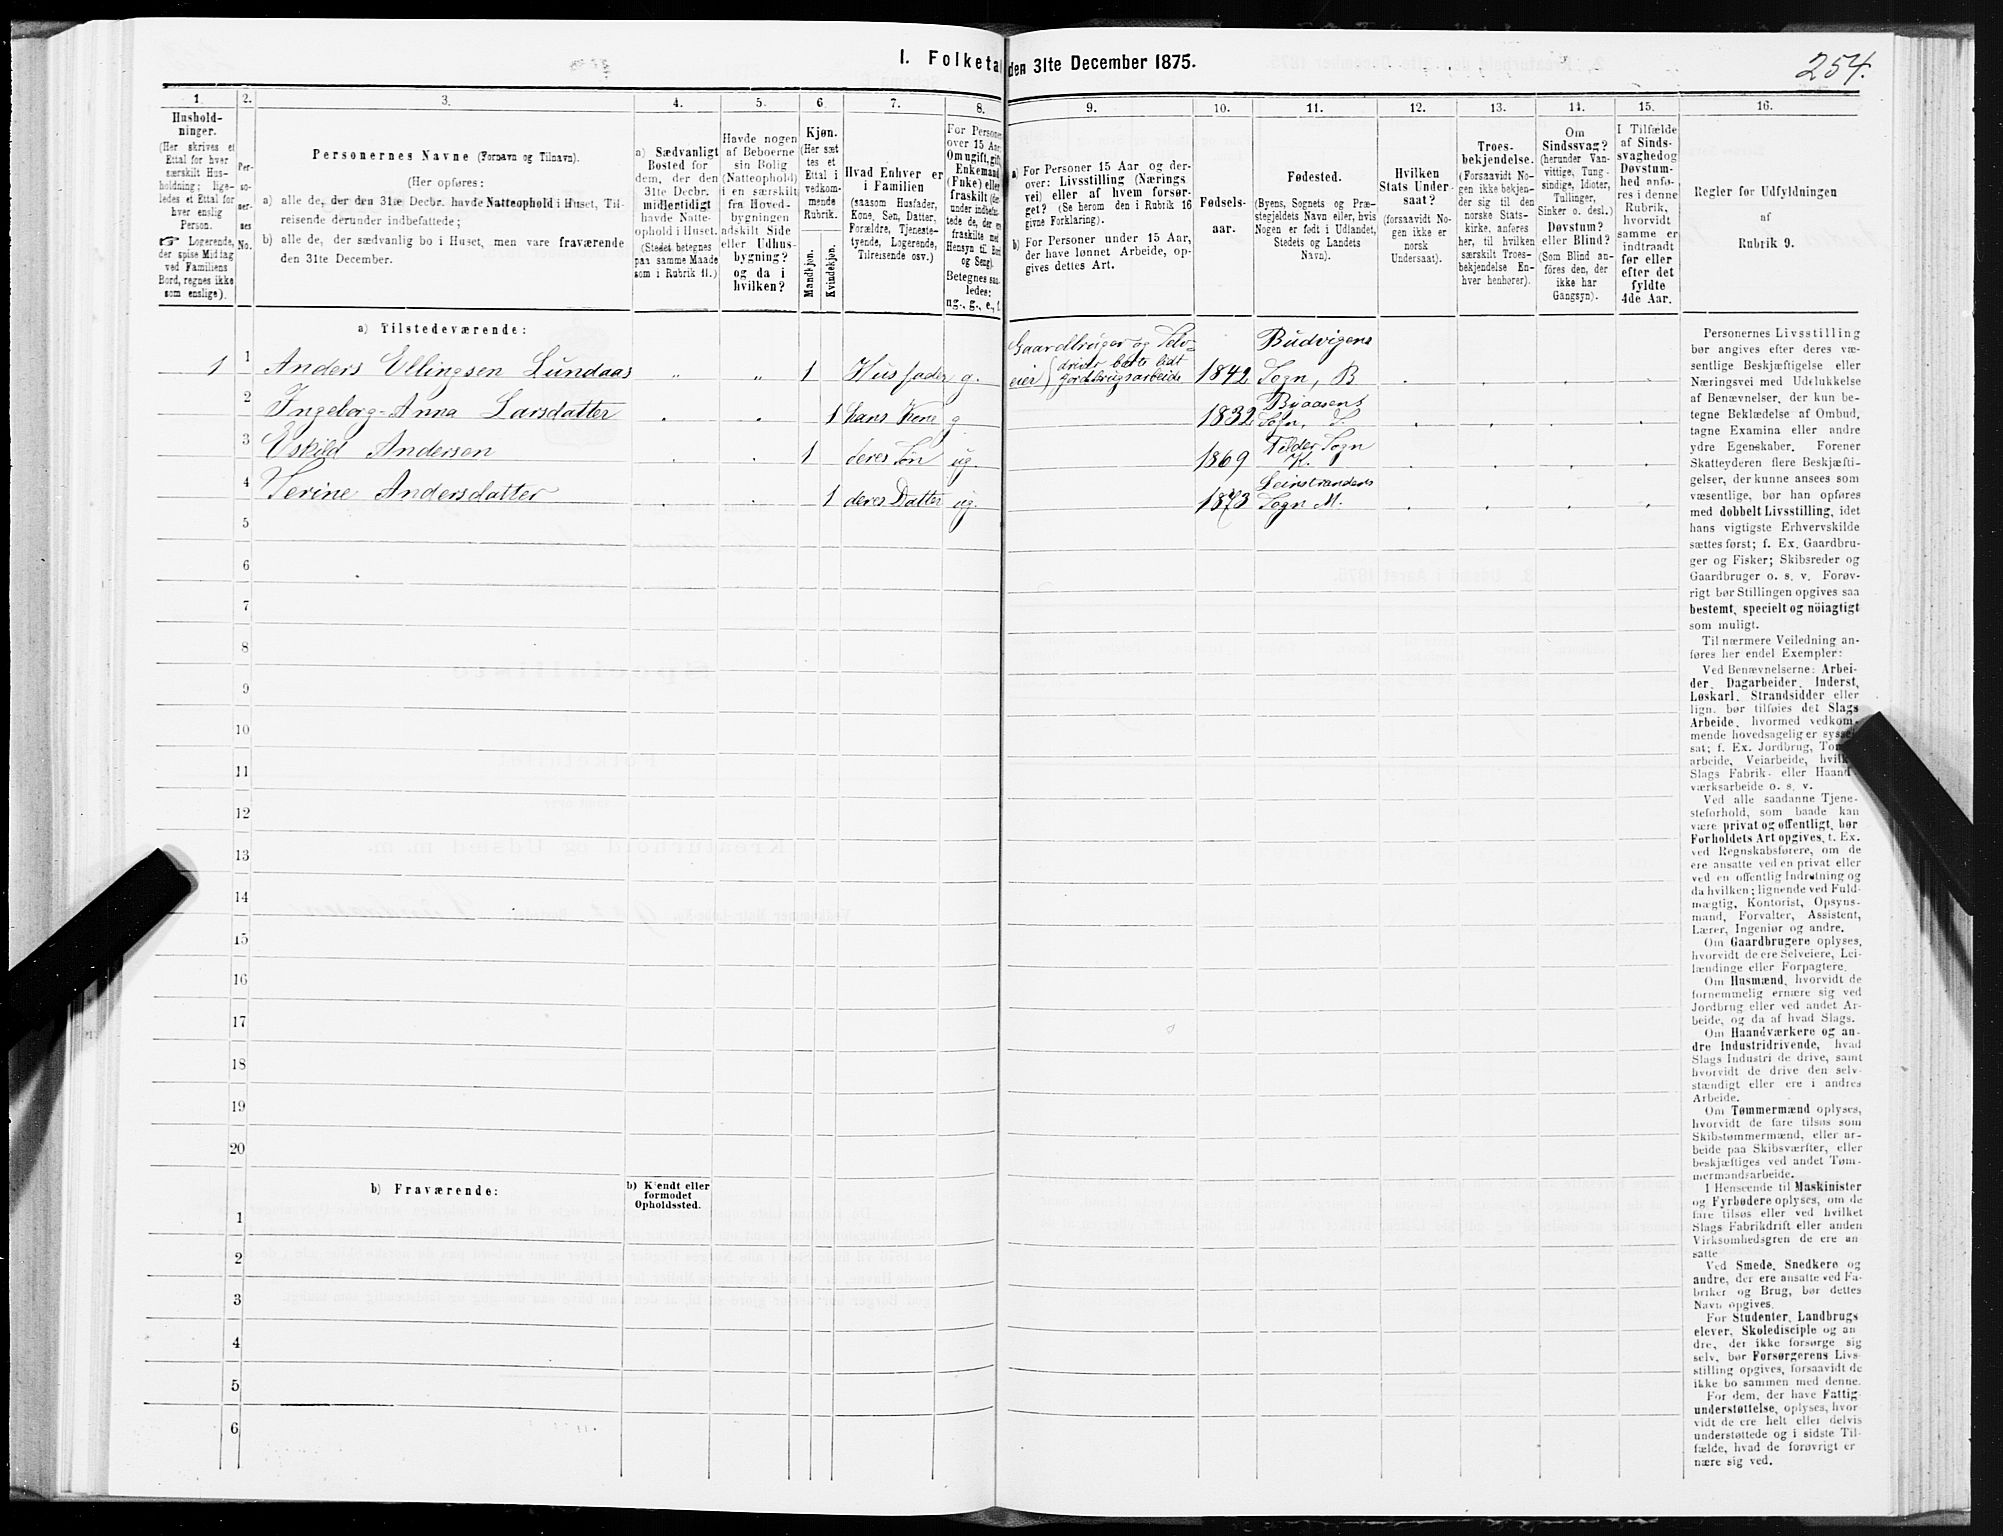 I. Folketal den 31te December 1875.
254.
1.
2.
3.
4.
5.
6.
7.
8.
9.
10.
11.
12.
13.
14.
15.
16.
Hushold-
ninger.
(Her skrives et
Ettal for hver
særskilt Hus-
holdning; lige-
ledes et Ettal for
hver enslig
Person.
☞ Logerende,
der spise Middag
ved Familiens
Bord, regnes ikke
som enslige).
Per-
so-
ner-
nes
No.
Personernes Navne (Fornavn og Tilnavn).
(Her opføres:
a) alle de, der den 31te Decbr. havde Natteophold i Huset, Til-
reisende derunder indbefattede;
b) alle de, der sædvanlig bo i Huset, men vare fraværende
den 31te December.
a) Sædvanligt
Bosted for
dem, der den
31te Decbr.
midlertidigt
havde Natte-
ophold i Huset.
(Stedet betegnes
paa samme Maade
som i Rubrik 11.)
Havde nogen
af Beboerne
sin Bolig
(Natteophold)
i en særskilt
fra Hoved-
bygningen
adskilt Side
eller Udhus-
bygning?
og da i
hvilken?
Kjøn.
(Her sæt
tes et
Ettal i
vedkom-
mende
Rubrik.
Mandkjøn.
Kvindekjøn.
Hvad Enhver er
i Familien
(saasom Husfader,
Kone, Søn, Datter,
Forældre, Tjeneste-
tyende, Logerende,
Tilreisende osv.)
For Personer
over 15 Aar:
Om ugift, gift,
Enkemand
(Enke) eller
fraskilt
Betegnes saa-
ledes:
ug., g., e., f.
a) For Personer 15 Aar og der-
over: Livsstilling (Nærings
vei) eller af hvem forsør-
get? (Se herom den i Rubrik 16
givne Forklaring).
b) For Personer under 15 Aar,
der have lønnet Arbeide, op-
gives dettes Art.
Fødsels-
aar.
Fødested.
(Byens, Sognets og Præ-
stegjeldets Navn eller, hvis
Nogen er født i Udlandet,
Stedets og Landets
Navn).
Hvilken
Stats Under-
saat?
(forsaavidt No-
gen ikke er
norsk
Undersaat).
Troes-
bekjendelse.
(Forsaavidt No-
gen ikke bekjen-
der sig til den
norske Stats-
kirke, anføres
her, til hvilken
særskilt Troes-
bekjendelse En-
hver henhører).
Om
Sindssvag?
(herunder Van-
vittige, Tung-
sindige, Idioter,
Tullinger,
Sinker o. desl.)
Døvstum?
eller Blind?
(Som Blind an-
føres den, der
ikke har
Gangsyn).
I Tilfælde
af Sinds-
svaghed og
Døvstum-
hed anfø-
res i denne
Rubrik,
hvorvidt
samme er
indtraadt
før eller
efter det
fyldte
4de Aar.
Regler for Udfyldningen
af
Rubrik 9.
a) Tilstedeværende:
1 1 Anders Ellingsen Lundaas „ „ 1 Husfader g. Gaardbruger og Selv-
eier (driver bare lidt
Jordbrugsarbeide 1842 Budvigens
Sogn, B
2 Ingeborg-Anna Larsdatter 1 hans Kone g 1832
Sogn, S.
3 Eskild Andersen 1 deres Søn ug. 1869 Tilder Sogn
K.
4 Serine Andersdatter 1 deres Datter ug. 1873 Leinstrandens
Sogn M.
5
6
7
8
9
10
11
12
13
14
15
16
17
18
19
20
b) Fraværende:
b) Kjendt eller
formodet
Opholdssted.
1
2
3
4
5
6
Personernes Livsstilling
bør angives efter deres væ-
sentlige Beskjæftigelse eller
Næringsvei med Udelukkelse
af Benævnelser, der kun be-
tegne Beklædelse af Ombud,
tagne Examina eller andre
ydre Egenskaber. Forener
Skatteyderen flere Beskjæfti-
gelser, der kunne ansees som
væsentlige, bør han opføres
med dobbelt Livsstilling, idet
hans vigtigste Erhvervskilde
sættes først; f. Ex. Gaardbru-
ger og Fisker; Skibsreder og
Gaardbruger o. s. v. Forøv-
rigt bør Stillingen opgives saa
bestemt, specielt og nöiagtigt
som muligt.
Til nærmere Veiledning an-
føres her endel Exempler:
Ved Benævnelserne: Arbei-
der, Dagarbeider, Inderst,
Løskarl, Strandsidder eller
lign. bør tilføies det Slags
Arbeide, hvormed vedkom-
mende hovedsagelig er syssel
sat; f. Ex. Jordbrug,
arbeide, Veiarbeide,
Slags Fabrik- eller Haand-
værksarbeide o. s. v.
Ved alle saadanne Tjene-
steforhold, som baade kan
være privat og offentligt, bør
Forholdets Art opgives, f. Ex.
ved Regnskabsførere, om de
ere ansatte ved en privat eller
ved en offentlig Indretning og
da hvilken; lignende ved Fuld-
mægtig, Kontorist, Opsyns-
mand, Forvalter, Assistent,
Lærer, Ingeniør og andre.
Om Gaardbrugere oplyses,
hvorvidt de ere Selveiere, Lei-
lændinge eller Forpagtere.
Om Husmænd, hvorvidt de
fornemmelig ernære sig ved
Jordbrug eller ved andet Ar-
beide, og da af hvad Slags.
Om Haandværkere og an-
dre Industridrivende, hvad
Slags Industri de drive, samt
hvorvidt de drive den selv-
stændigt eller ere i andres
Arbeide.
Om Tømmermænd oplyses,
hvorvidt de fare tilsøs som
Skibstømmermænd, eller ar-
beide paa Skibsværfter, eller
beskjæftiges ved andet Tøm-
mermandsarbeide.
I Henseende til Maskinister
og Fyrbødere oplyses, om de
fare tilsøs eller ved hvilket
Slags Fabrikdrift eller anden
Virksomhedsgren de ere an
satte
Ved Smede, Snedkere og
andre, der ere ansatte ved Fa-
briker og Brug, bør dettes
Navn opgives.
For Studenter, Landbrugs
elever, Skoledisciple og an
dre, der ikke forsørge sig
selv, bør Forsørgerens Livs-
stilling opgives, forsaavidt de
ikke bo sammen med denne.
For dem, der have Fattig
understøttelse, oplyses, hvor
vidt de ere helt eller delvis
understøttede og i sidste Til-
fælde, hvad de forøvrigt er
nære sig ved.